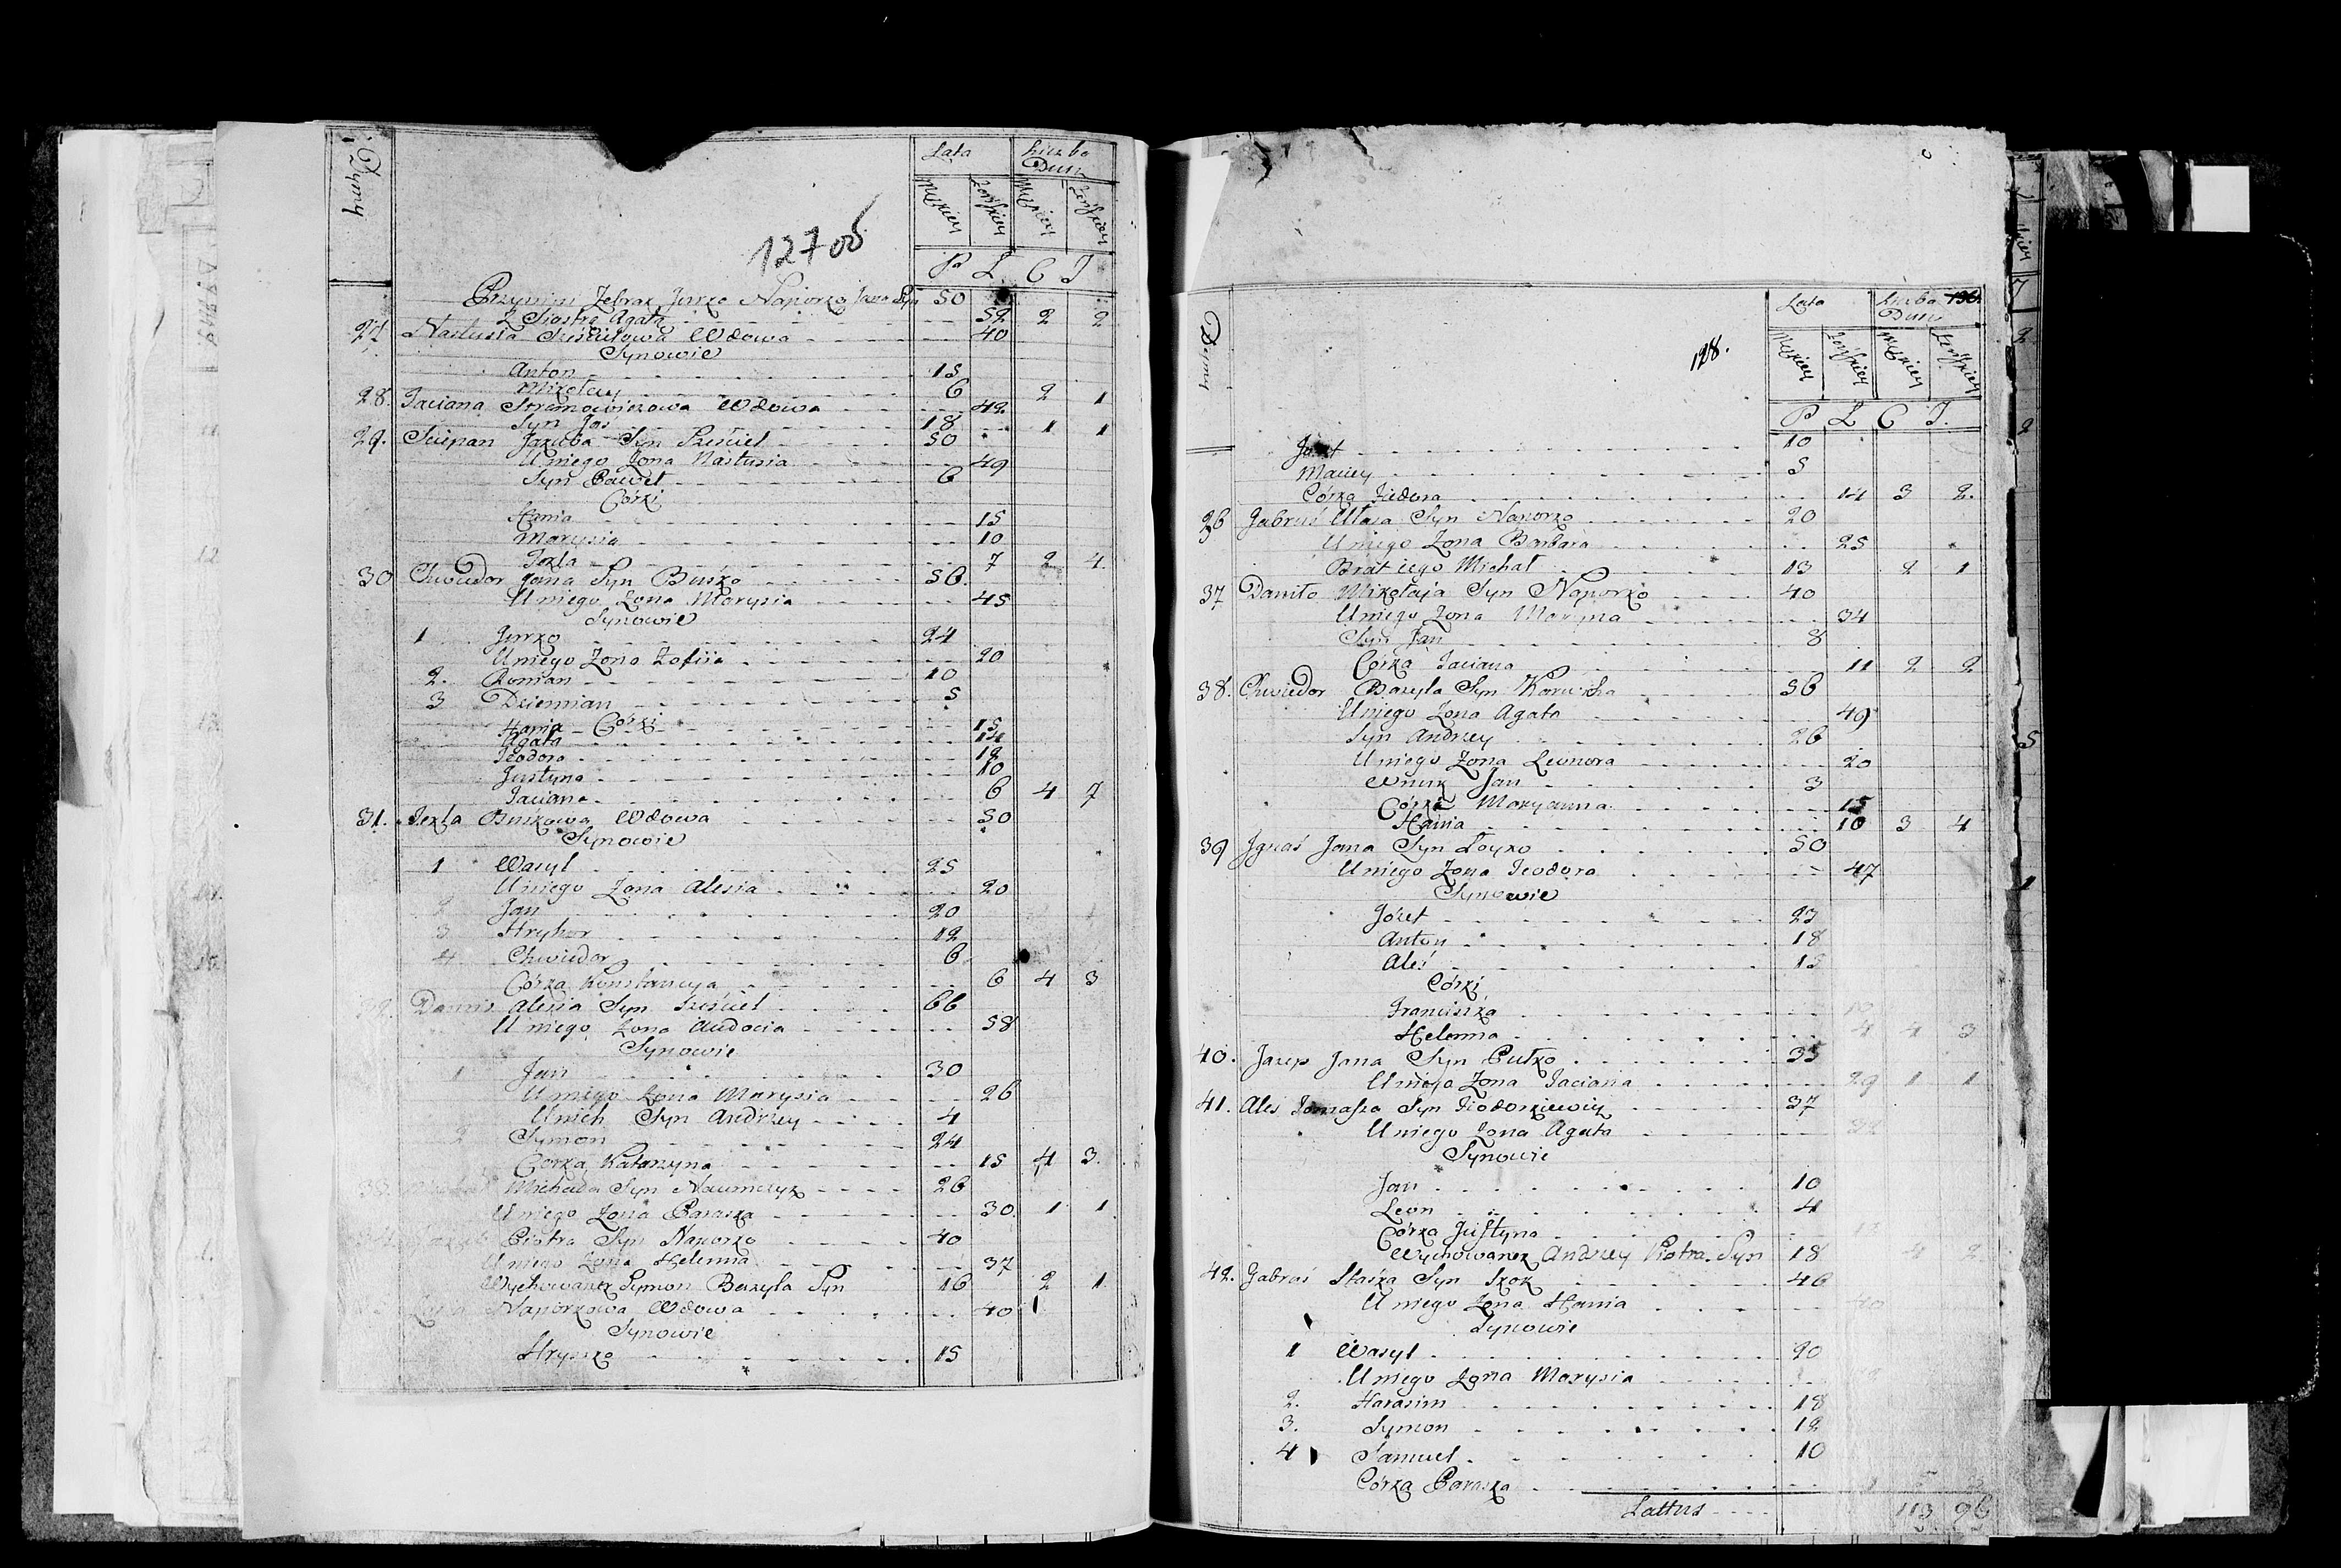 Dymy
Lata
Liczba Dusz
Męzkiey
Żeńskiey
Męzkiey
Żeńskiey
P L C T
127 об
Przynim Żebrak Jurko Naporko Jana Syn 50
Z Siostrą Agatą 52 2 2
27 Nastusia Wdowa 40
Synowie
Anton 15
Mikołay 6 2 1
28. Taciana Wdowa 42
Syn Jaś 18 1 1
29. Sciepan Jakuba Syn 50
U niego Żona Nastusia 49
Syn Paweł 6
Córki
Hania 15
Marysia 10
Tekla 7 2 4
30 Chwiedor Jana Syn Buśko 56
U niego Żona Marysia 45
Synowie
1 Jurko 24
U niego Żona Zofiia 20
2. Roman 10
3 Dziemian 5
Hania Córki 15
Agata 14
Teodora 12
Justyna 10
Taciana 6 4 7
31. Tekla Buskowa Wdowa 50
Synowie
1 Wasyl 25
U niego Żona Alesia 20
2 Jan 20
3 Hryhor 12
4 Chwiedor 6
Córka Konstancya 6 4 3
32. Danis Alesia Syn 66
U niego Żona Audocia 58
Synowie
1 Jan 30
U niego Żona Marysia 26
U nich Syn Andrzey 4
2 Symon 24
Corka Katarzyna 15 4 3
33. Michała Syn Naumczyk 26
U niego Żona Paraska 30 1 1
Piotra Syn Naporko 40
U niego Żona Helenna 37
Wychowanek Symon Bazyla Syn 16 2 1
Naporkowa Wdowa 40
Synowie
Hryszko 15
Dymy
128.
Lata
Liczba Dusz
136
Męzkiey
Żeńskiey
Męzkiey
Żeńskiey
P L C T.
Józef 10
Maciey 5
Córka Fiedora 14 3 2.
36 Gabruś Ułasa Syn Naporko 20
U niego Żona Barbara 25
Brat iego Michał 13 2 1
37 Daniło Mikołaja Syn Naporko 40
U niego Żona Maryna 34
Syn Jan 8
Córka Taciana 11 2 2
38. Chwiedor Bazyla Syn 56
U niego Żona Agata 49
Syn Andrzey 26
U niego Żona Leonora 20
Wnuk Jan 3
Córki Maryanna 15
Hania 10 3 4
39 Jgnaś Jana Syn Łoyko 50
U niego Żona Teodora 47
Synowie
Józef 23
Anton 18
Aleś 15
Córki
Franciszka 10
Helenna 4 4 3
40. Jazep Jana Syn Putko 35
U niego Żona Taciana 29 1 1
41. Ales Tomasza Syn Fiodorkiewicz 37
U niego Żona Agata 32
Synowie
Jan 10
Leon 4
Córka Justyna
Wychowanek Andrzey Piotra Syn 18 4 2
42. Gabruś Staśka Syn Skok 46
U niego Żona Hania 40
Synowie
1 Wasyl 20
U niego Żona Marysia
2. Harasim 18
3. Symon 12
4 Samuel 10
Córka Paraska
Lattus 113 96